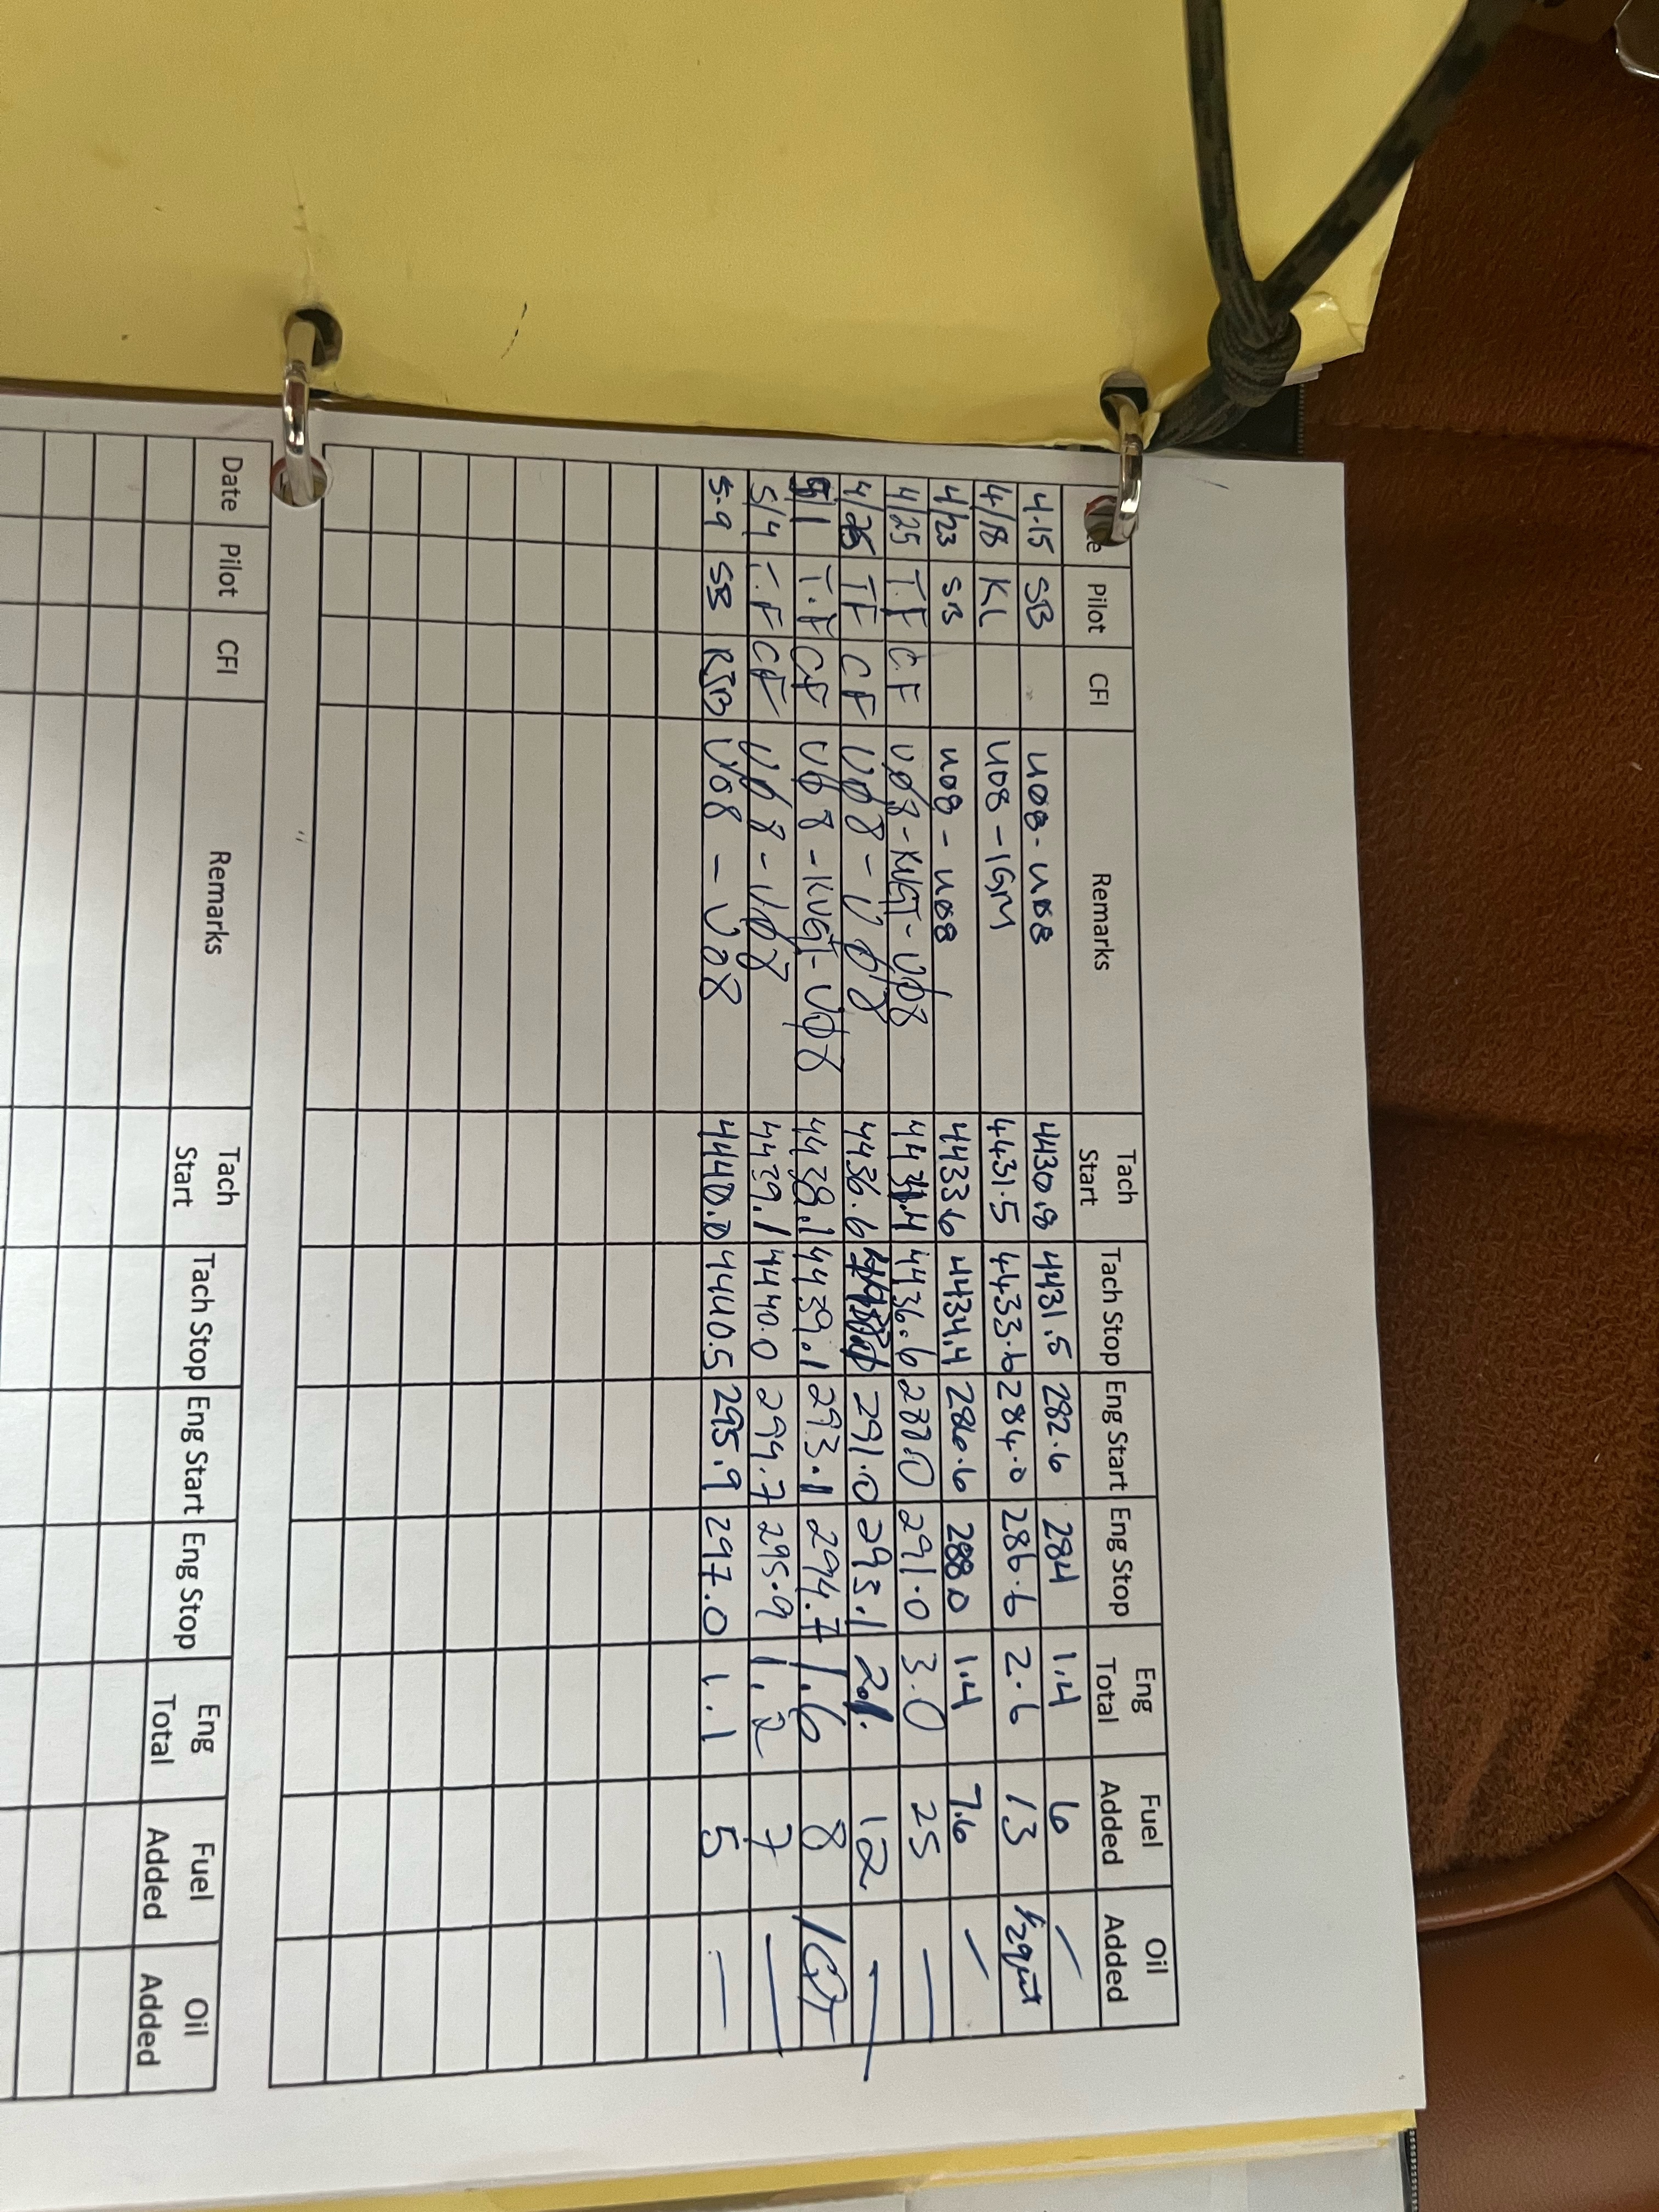 Date Pilot CFI Remarks Tach Start Tach Stop Eng Start Eng Stop Eng Total Fuel Added Oil Added
4.15 SB U08-U08 4430.8 4431.5 282.6 284 1.4 6 —
4/18 KL U08-1GM 4431.5 4433.6 284.0 286.6 2.6 13 1/2 quart
4/23 SB U08-U08 4433.6 4434.4 286.6 288.0 1.4 7.6 —
4/25 T.F C.F UØ8-KVGT-UØ8 4434.4 4436.6 288.0 291.0 3.0 25 —
TF CF UØ8-UØ8 4436.6 291.0 293.1 2.1 12 —
T.F CF UØ8-KVGT-UØ8 4438.1 4439.1 293.1 294.7 1.6 8 1QT
5/4 T.F CF UØ8-UØ8 4439.1 4440.0 294.7 295.9 1.2 7 —
5.9 SB RJB U08 - U08 4440.0 4440.5 295.9 297.0 1.1 5 —
Date Pilot CFI Remarks Tach Start Tach Stop Eng Start Eng Stop Eng Total Fuel Added Oil Added